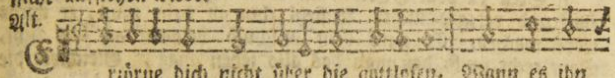 Alt.
Erzürne dich nicht über die gottlosen. Wann es ihn